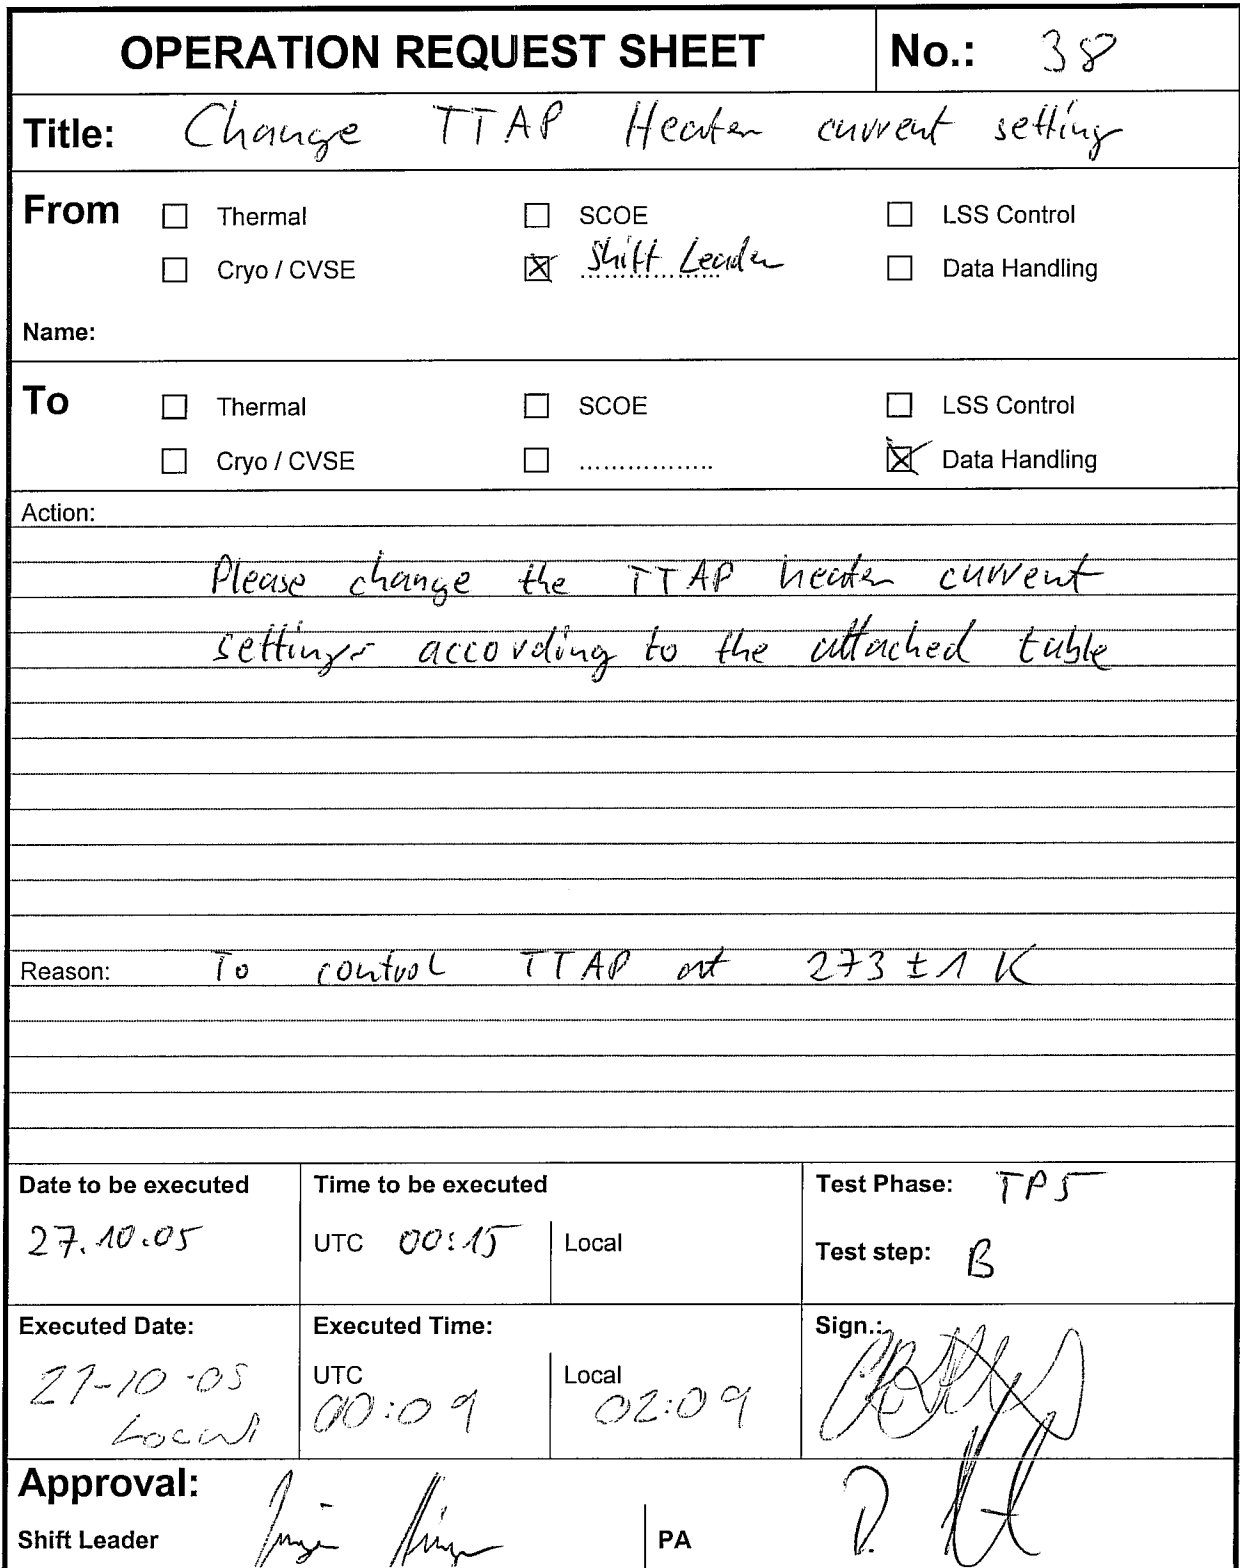 OPERATION REQUEST SHEET No.: 38
Title: Change TTAP Heater current setting
From ☐ Thermal ☐ SCOE ☐ LSS Control
☐ Cryo / CVSE ☒ Shift Leader ☐ Data Handling
Name:
To ☐ Thermal ☐ SCOE ☐ LSS Control
☐ Cryo / CVSE ☐ .................. ☒ Data Handling
Action:
Please change the TTAP heater current
settings according to the attached table
Reason: To control TTAP at 273 ± 1 K
Date to be executed Time to be executed Test Phase: TP5
27.10.05 UTC 00:15 Local
Test step: B
Executed Date: Executed Time: Sign.:
27-10-05 UTC Local
Local 00:09 02:09
Approval:
Shift Leader PA